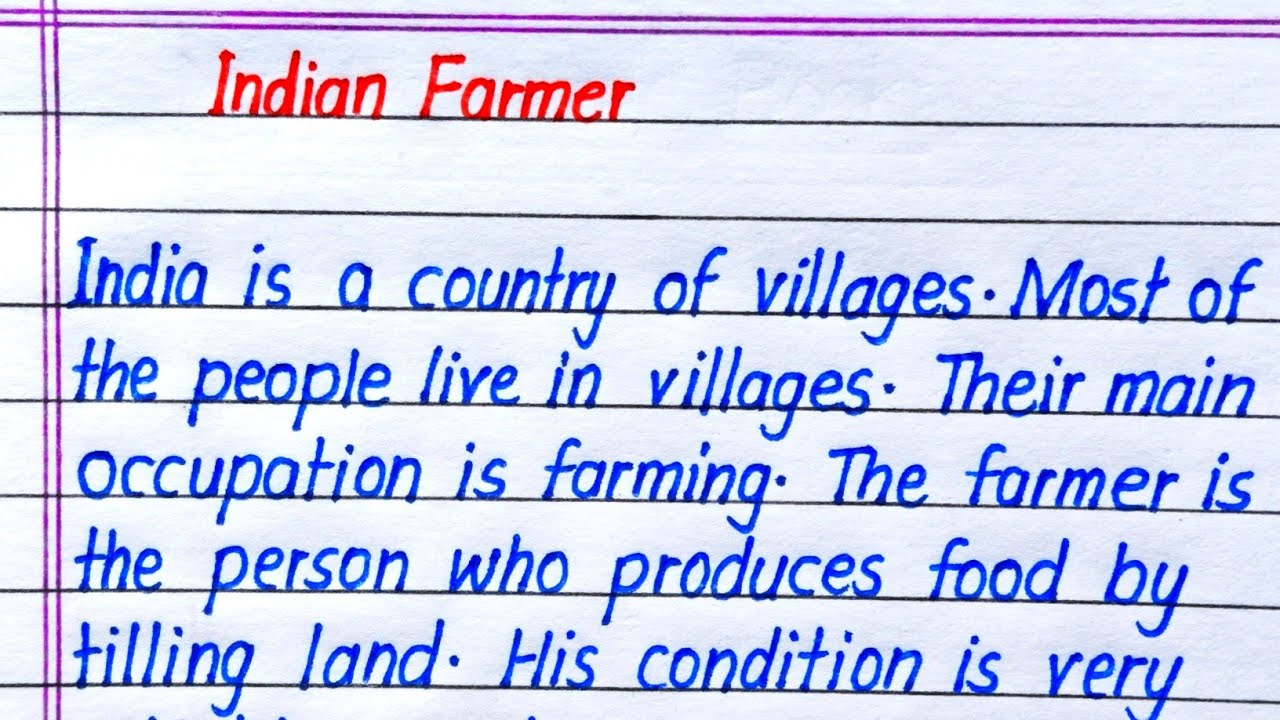 Indian Farmer
India is a country of villages. Most of
the people live in villages. Their main
occupation is farming. The farmer is
the person who produces food by
tilling land. His condition is very